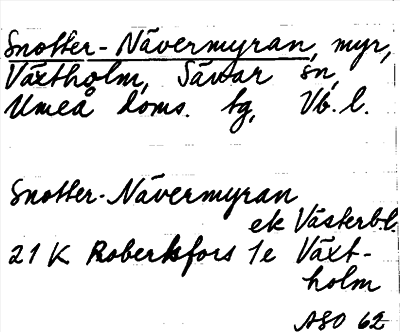 Snotter-Nävermyran, myr,
Växtholm, Sävar sn,
Umeå doms. tg, Vb. l.
Snotter-Nävermyran
ek Västerb.l.
21 K Robertsfors 1e Växt-
holm
ASO 62